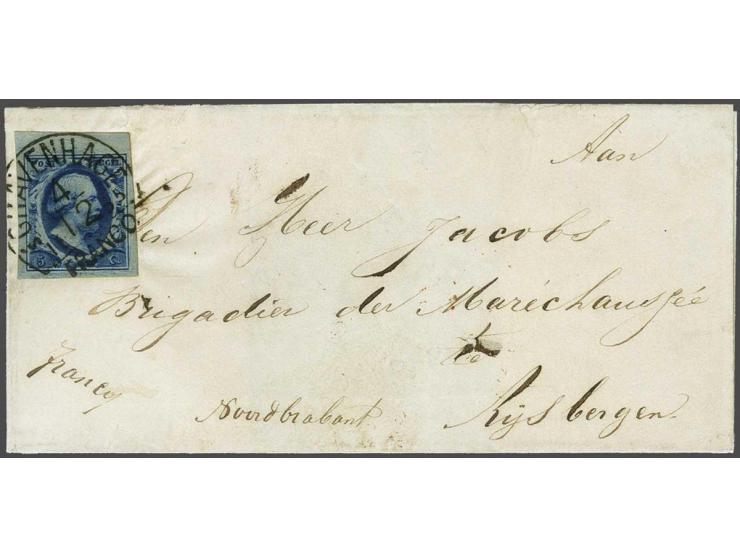 Aan
Den Heer Jacobs
Brigadier der Maréchaussée
te
Rijsbergen.
Noordbrabant
franco
'S GRAVENHAGE
4
12
FRANCO
5 C.